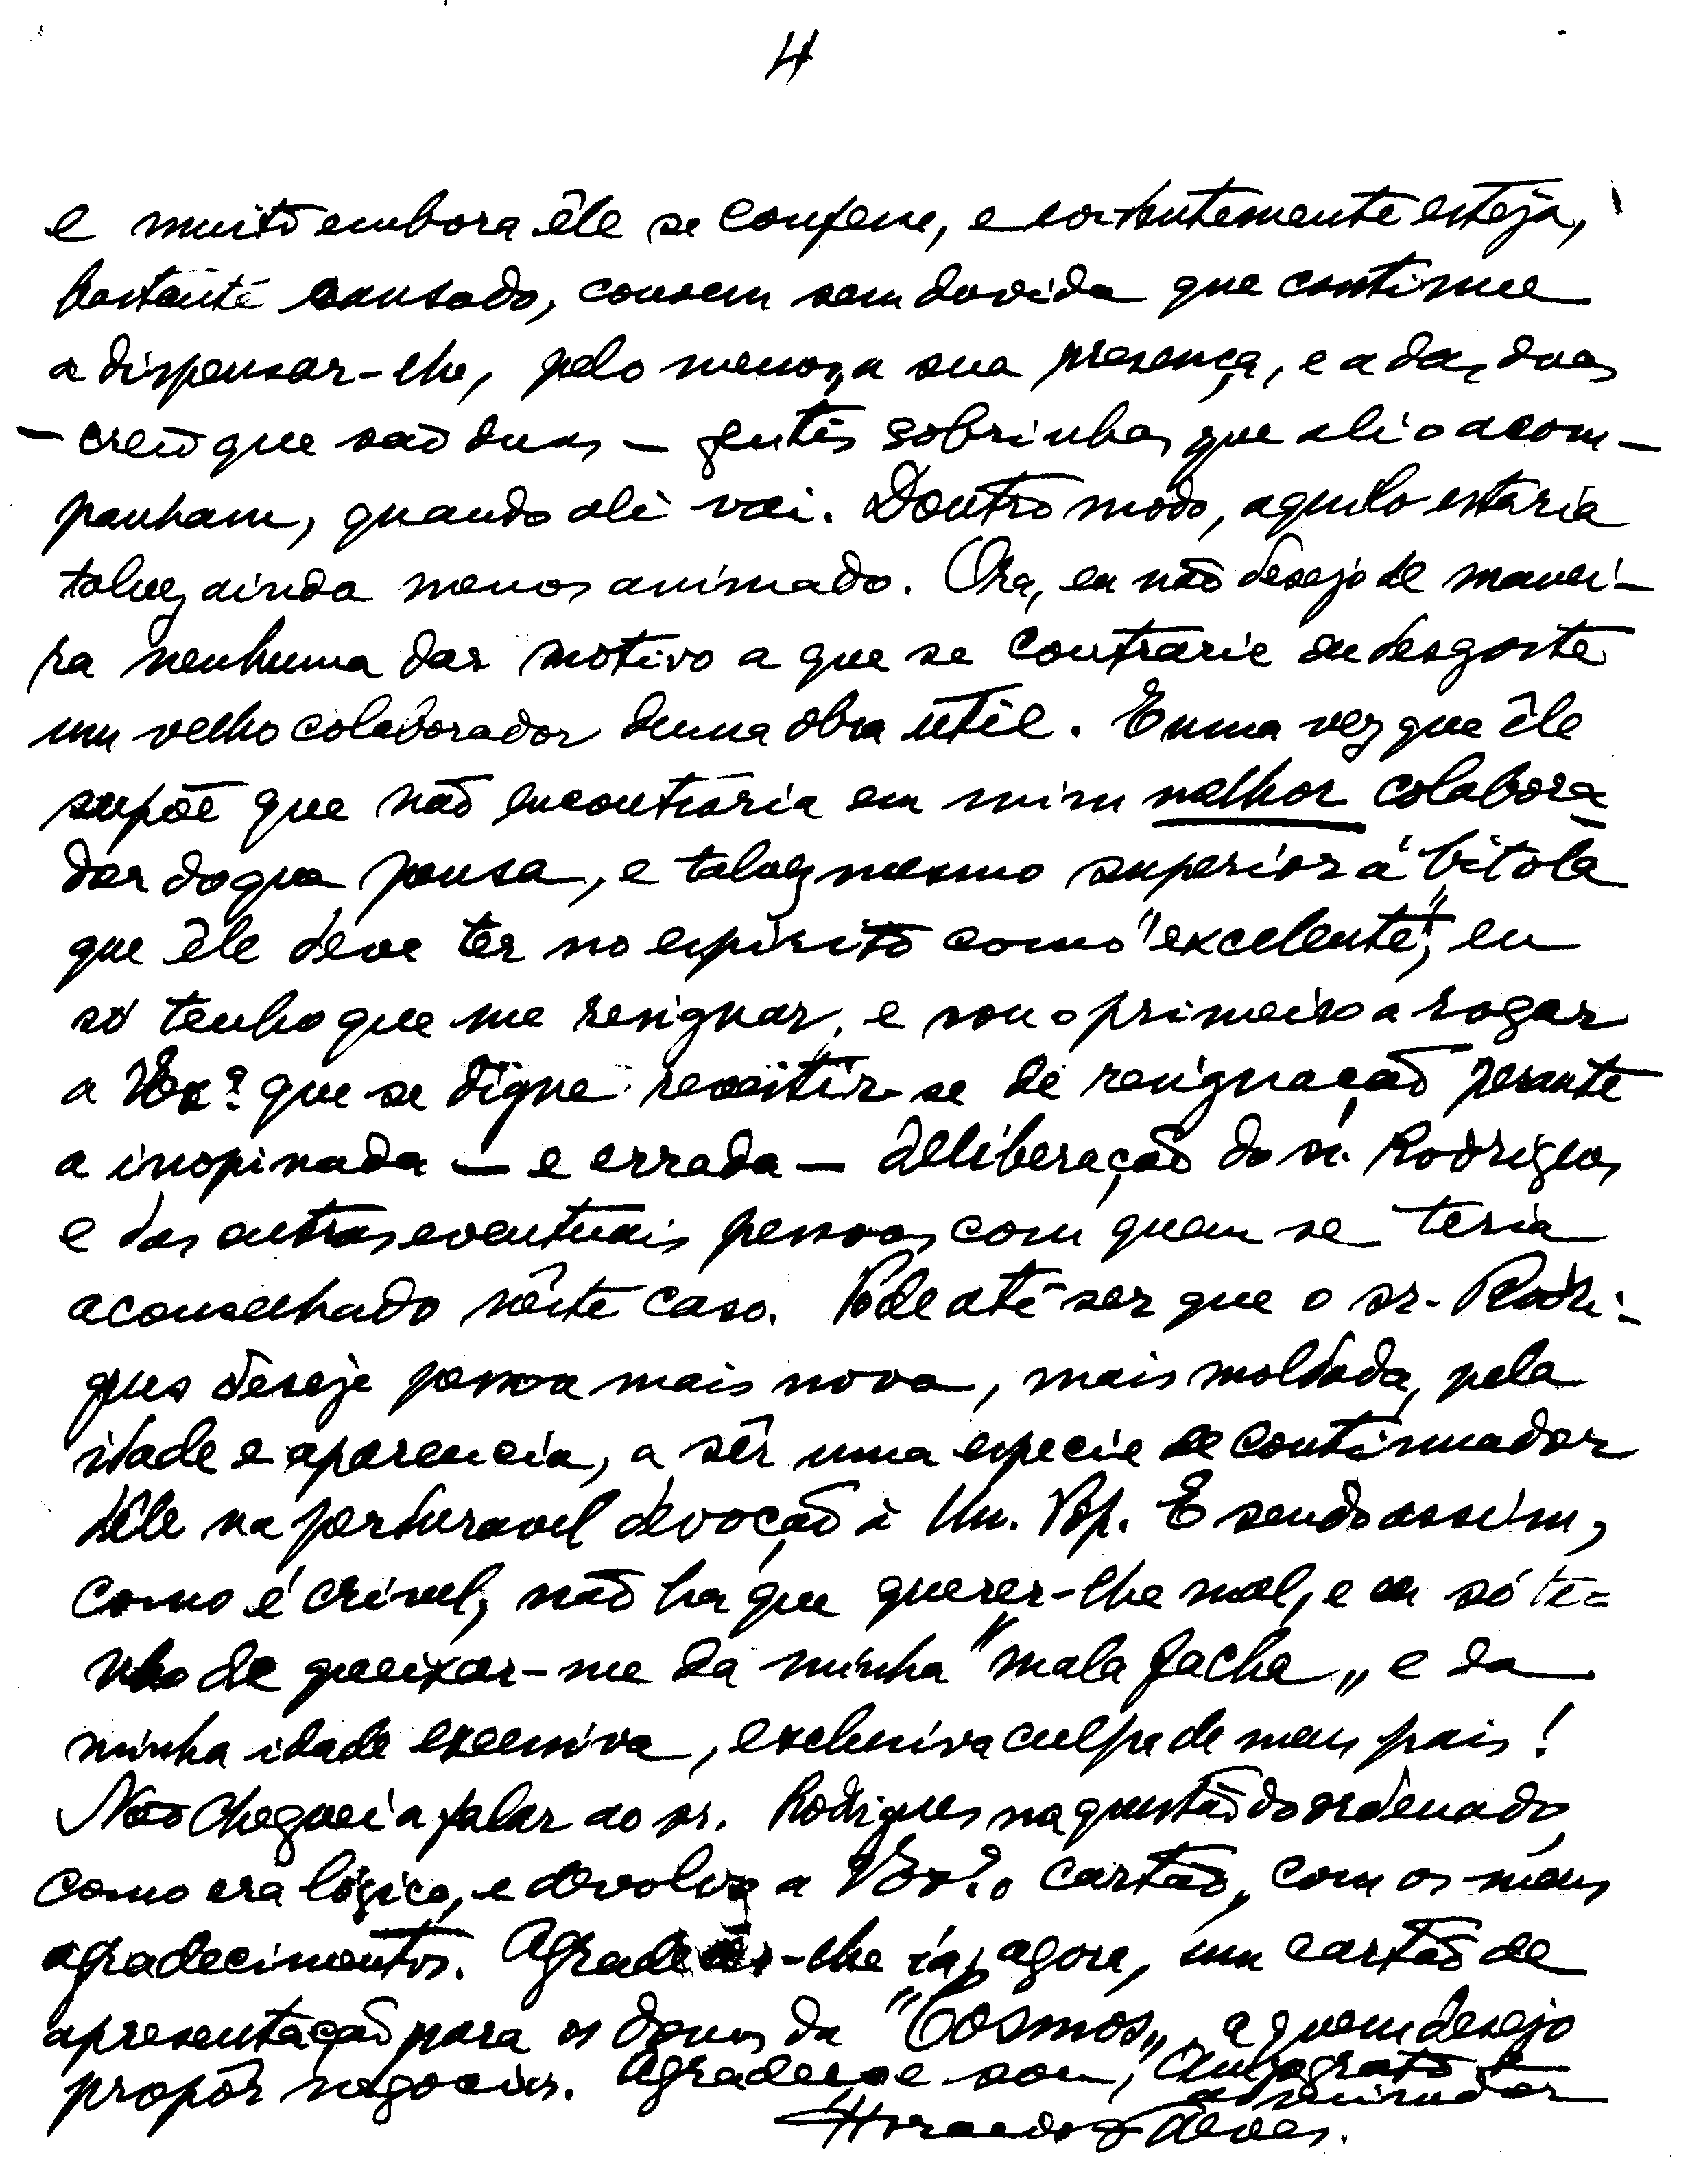 4
e muito embora êle se confesse, e evidentemente esteja,
bastante cansado, convem sem duvida que continue
a dispensar-lhe, pelo menos, a sua presença, e a das duas
— creio que são duas — gentis sobrinhas que ali o acom-
panham, quando ali vai. Doutro modo, aquilo estaria
talvez ainda menos animado. Ora, eu não desejo de manei-
ra nenhuma dar motivo a que se contrarie ou desgoste
um velho colaborador duma obra util. E uma vez que êle
supõe que não encontraria em mim melhor colabora-
dor do que pensa, e talvez mesmo superior á bitola
que êle deve ter no espirito como "excelente", eu
só tenho que me resignar, e sou o primeiro a rogar
a V. Exª que se digne revestir-se de resignação perante
a inopinada — e errada — deliberação do sr. Rodrigues
e das outras eventuais pessoas com quem se teria
aconselhado nêste caso. Pode até ser que o sr. Rodri-
gues deseje pessoa mais nova, mais moldada, pela
idade e aparencia, a sêr uma especie de continuador
dêle na perduravel devoção á Un. Pop. E sendo assim,
como é crivel, não ha que querer-lhe mal, e eu só te-
nho de queixar-me da minha "mala facha" e da
minha idade excessiva, exclusiva culpa de meus pais!
Não cheguei a falar ao sr. Rodrigues na questão do ordenado,
como era lógico, e devolvo a V. Exª o cartão, com os meus
agradecimentos. Agradecer-lhe ia, agora, um cartão de
apresentação para os donos da "Cosmos", a quem desejo
propôr negocios. Agradece e sou, Amº grato e
admirador
Alves.